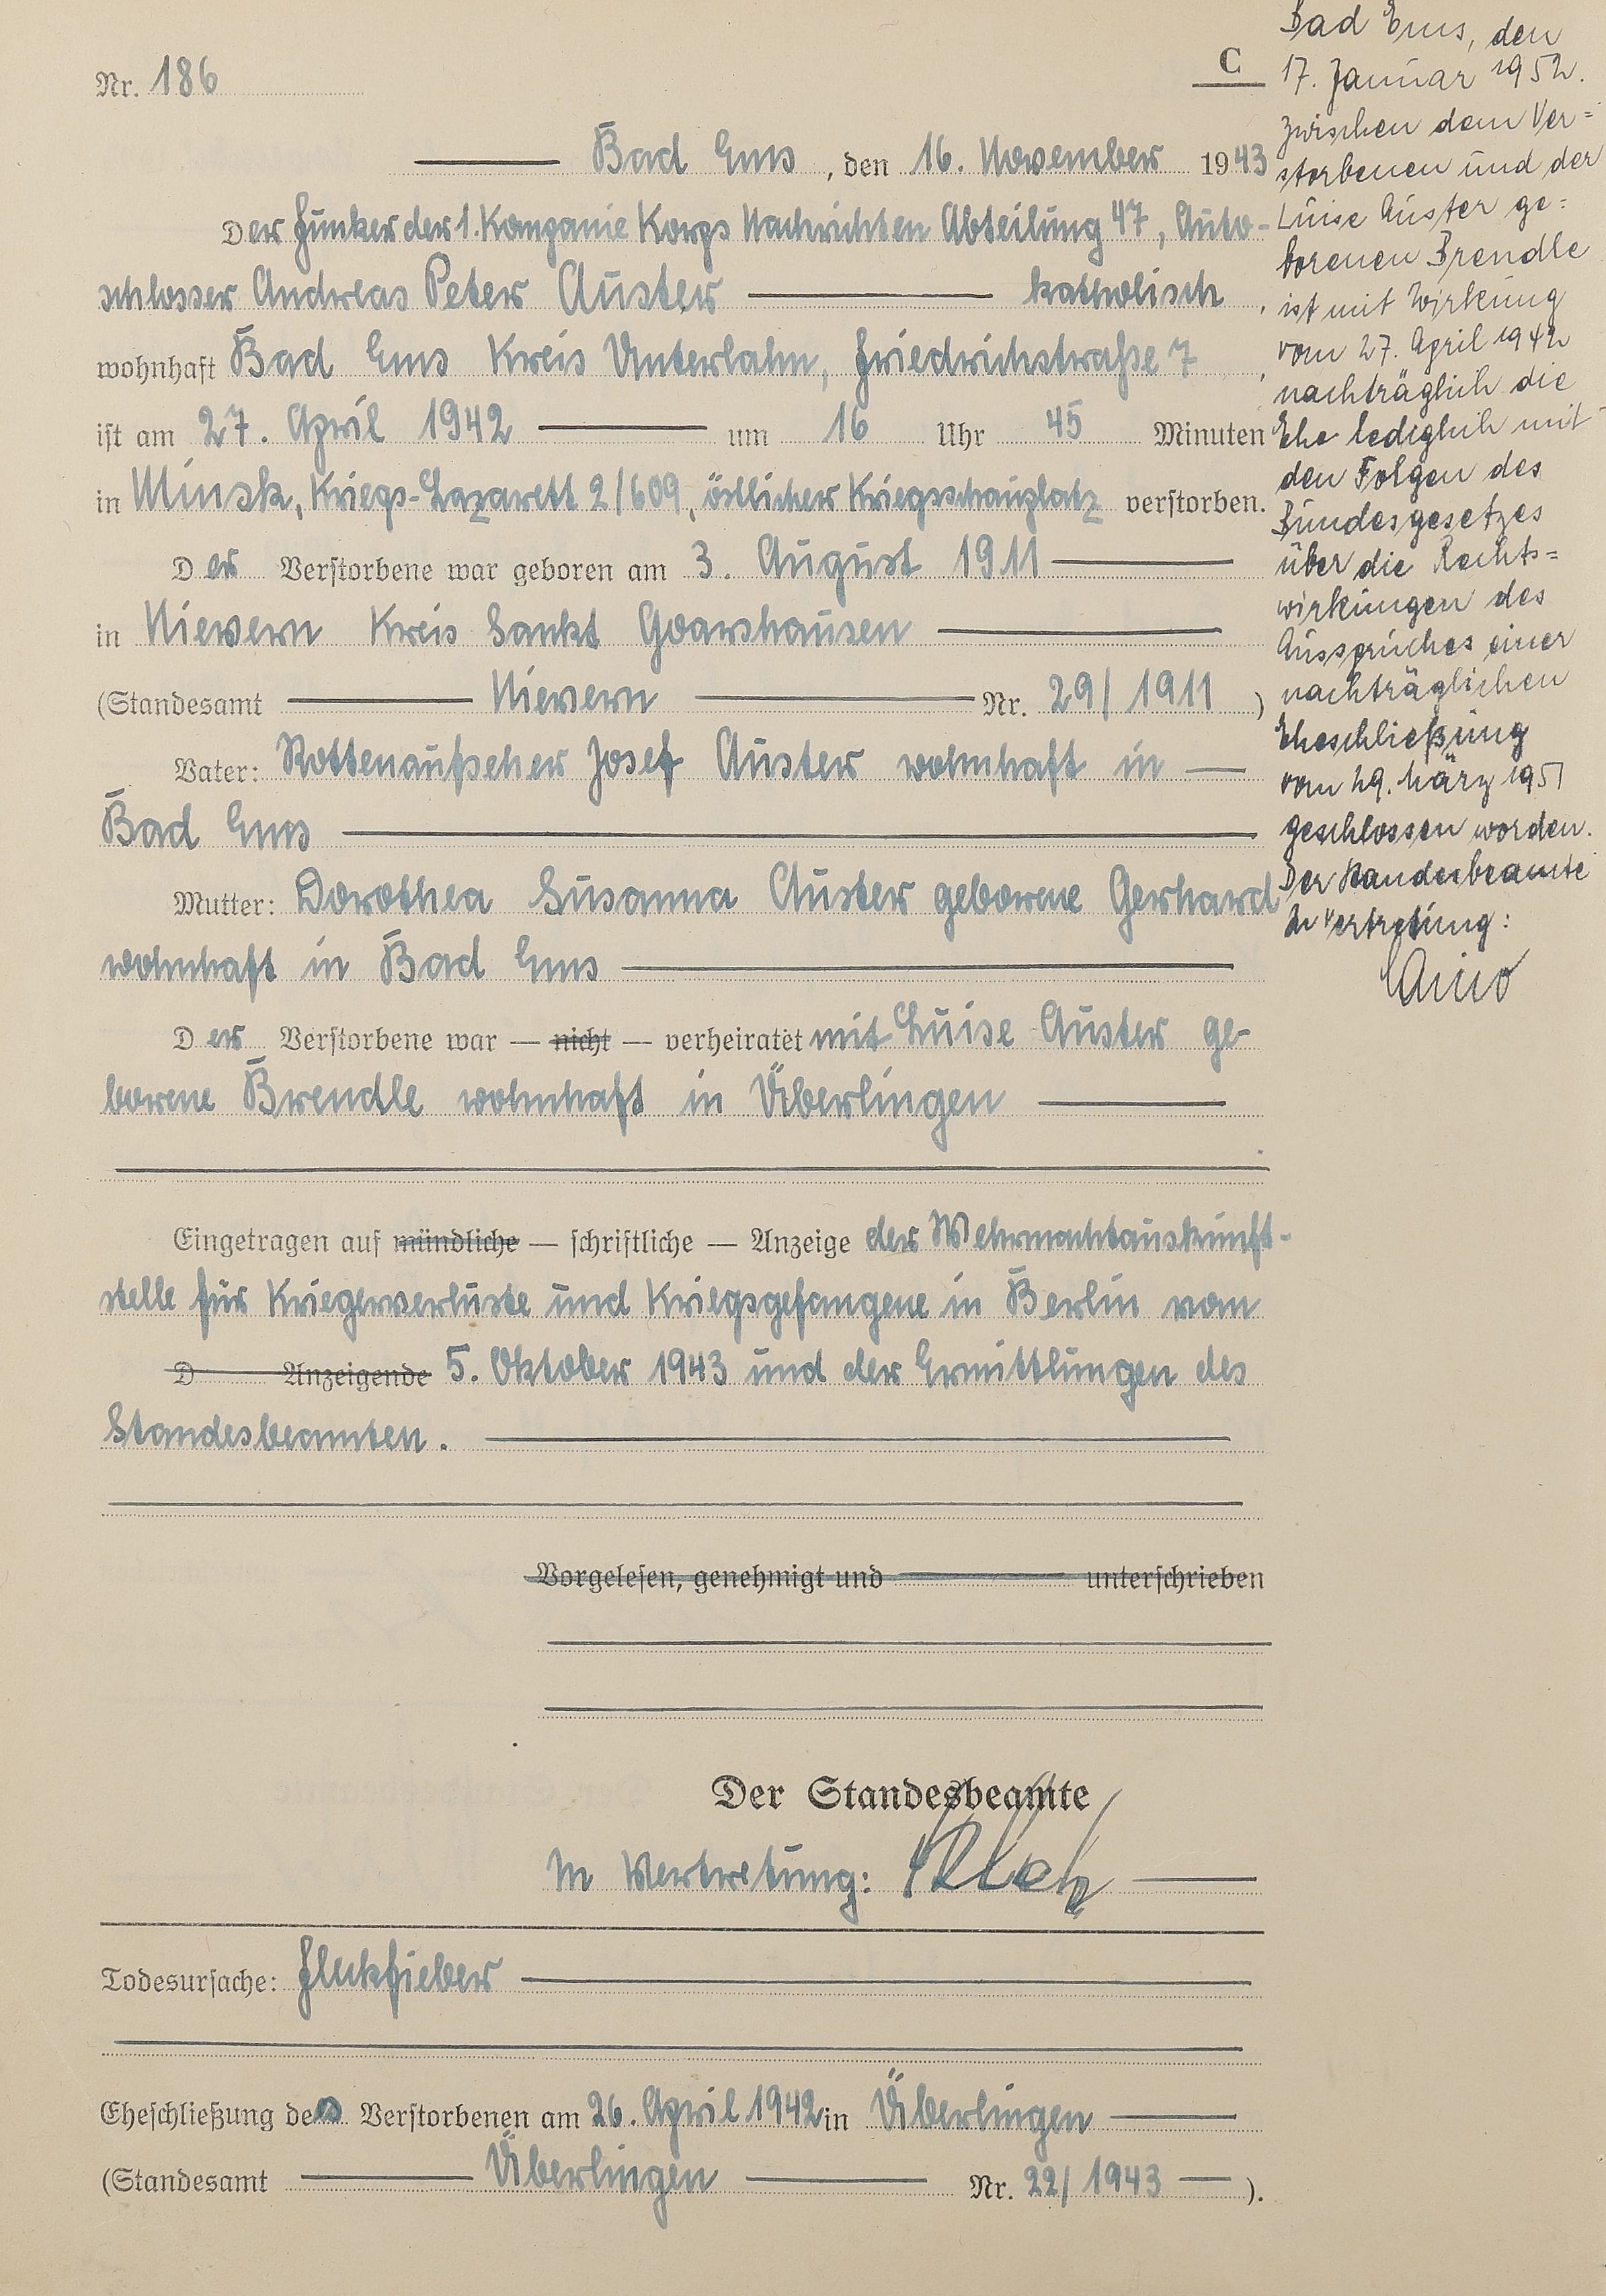 Nr. 186
C
Bad Ems, den 16. November 1943
Der Funker der 1. Kompanie Korps Nachrichten Abteilung 47, Auto-
schlosser Andreas Peter Auster katholisch,
wohnhaft Bad Ems Kreis Unterlahn, Friedrichstraße 7,
ist am 27. April 1942 um 16 Uhr 45 Minuten
in Minsk, Kriegs-Lazarett 2/609, östlicher Kriegsschauplatz verstorben.
Der Verstorbene war geboren am 3. August 1911
in Nievern Kreis Sankt Goarshausen
(Standesamt Nievern Nr. 29/1911)
Vater: Rottenaufseher Josef Auster wohnhaft in
Bad Ems
Mutter: Dorothea Susanna Auster geborene Gerhard
wohnhaft in Bad Ems
Der Verstorbene war — nicht — verheiratet mit Luise Auster ge-
borene Brendle wohnhaft in Überlingen
Eingetragen auf mündliche — schriftliche — Anzeige der Wehrmachtauskunft-
stelle für Kriegerverluste und Kriegsgefangene in Berlin vom
D Anzeigende 5. Oktober 1943 und der Ermittlungen des
Standesbeamten.
Vorgelesen, genehmigt und unterschrieben
Der Standesbeamte
In Vertretung:
Todesursache: Fleckfieber
Eheschließung des Verstorbenen am 26. April 1942 in Überlingen
(Standesamt Überlingen Nr. 22/1943).
Bad Ems, den
17. Januar 1952.
Zwischen dem Ver=
storbenen und der
Luise Auster ge=
borenen Brendle
ist mit Wirkung
vom 27. April 1942
nachträglich die
Ehe lediglich mit
den Folgen des
Bundesgesetzes
über die Rechts=
wirkungen des
Ausspruches einer
nachträglichen
Eheschließung
vom 29. März 1951
geschlossen worden.
Der Standesbeamte
In Vertretung: